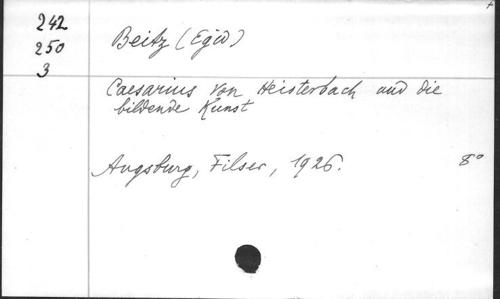 242
250
3
Beitz (Egid)
Caesarius von Heisterbach und die
bildende Kunst
Augsburg, Filser, 1926.
8°